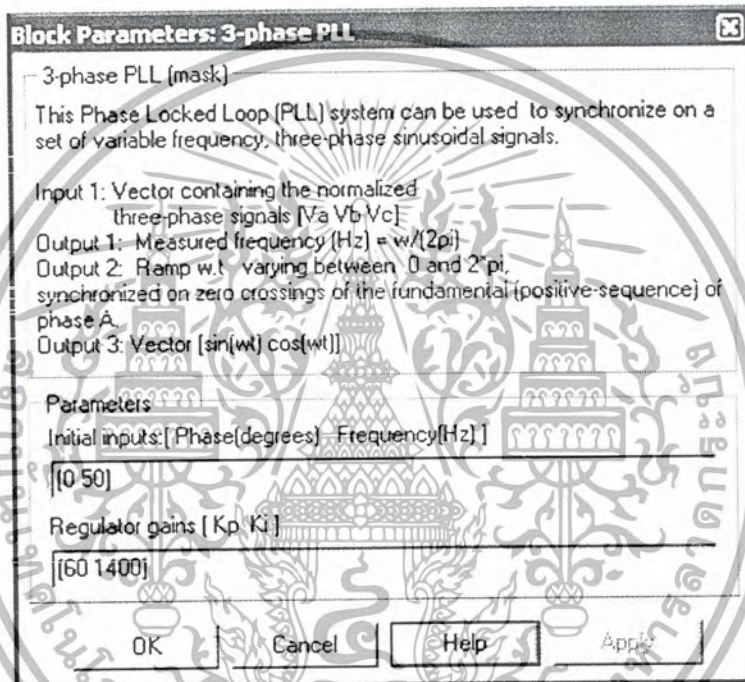 Block Parameters: 3-phase PLL
3-phase PLL (mask)
This Phase Locked Loop (PLL) system can be used to synchronize on a
set of variable frequency, three-phase sinusoidal signals.
Input 1: Vector containing the normalized
three-phase signals [Va Vb Vc]
Output 1: Measured frequency (Hz) = w/(2pi)
Output 2: Ramp w.t varying between 0 and 2*pi,
synchronized on zero crossings of the fundamental (positive-sequence) of
phase A.
Output 3: Vector [sin(wt) cos(wt)]
Parameters
Initial inputs:[ Phase(degrees) Frequency(Hz) ]
[0 50]
Regulator gains [ Kp Ki ]
[60 1400]
OK Cancel Help Apply